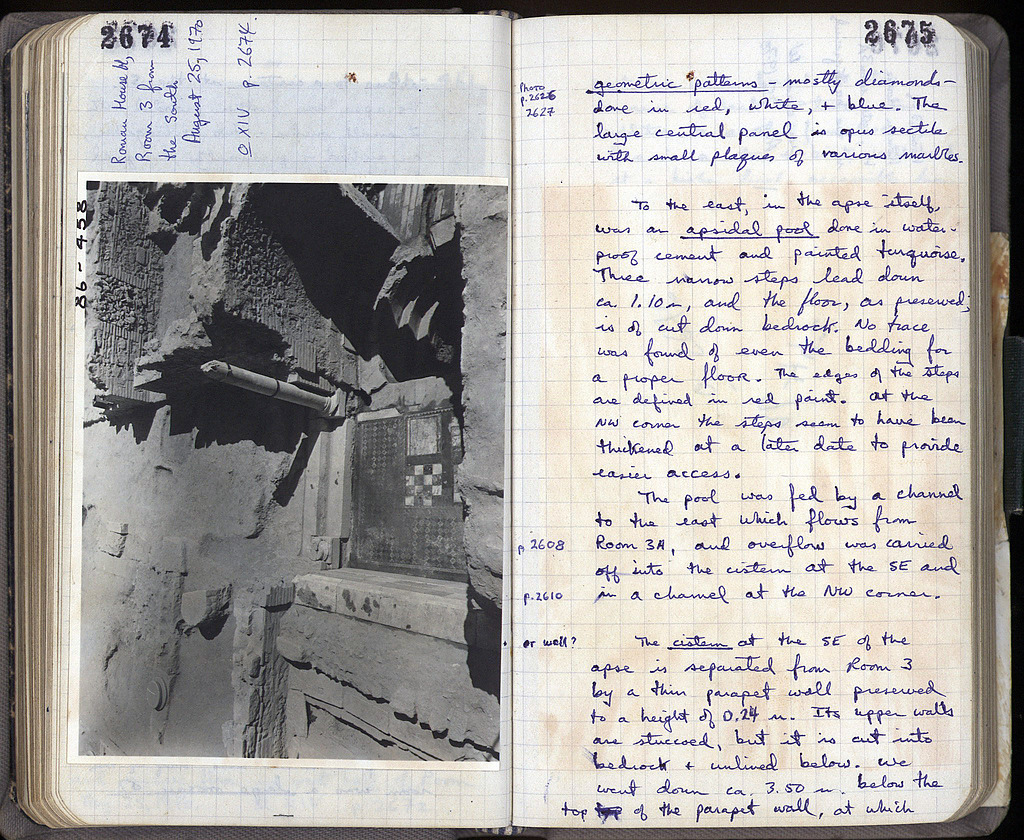 2674
Roman House H,
Room 3 from
the South
August 25, 1970
O XIV p. 2674.
86-458
2675
PHOTO
p. 2626
2627
geometric patterns - mostly diamonds -
done in red, white, + blue. The
large central panel is opus sectile
with small plaques of various marbles.
To the east, in the apse itself,
was an apsidal pool done in water-
proof cement and painted turquoise.
Three narrow steps lead down
ca. 1.10 m, and the floor, as preserved,
is of cut down bedrock. No trace
was found of even the bedding for
a proper floor. The edges of the steps
are defined in red paint. At the
NW corner the steps seem to have been
thickened at a later date to provide
easier access.
The pool was fed by a channel
to the east which flows from
p. 2608
Room 3A, and overflow was carried
off into the cistern at the SE and
p. 2610
in a channel at the NW corner.
or well?
The cistern at the SE of the
apse is separated from Room 3
by a thin parapet wall preserved
to a height of 0.24 m. Its upper walls
are stuccoed, but it is cut into
bedrock + unlined below. We
went down ca. 3.50 m. below the
top of the parapet wall, at which